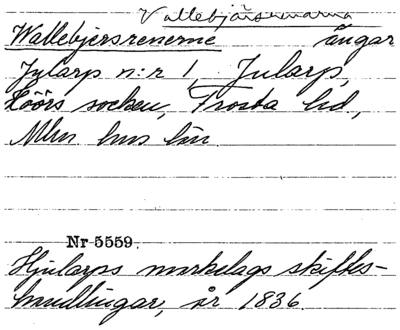 Vallebjärsrenarna
Wallebjersrenerne ängar
Jylarp n:r 1, Jularp,
Höörs socken, Frosta hd,
Mlm hus län
Nr 5559.
Hjularps markelags skiftes-
handlingar, år 1836.